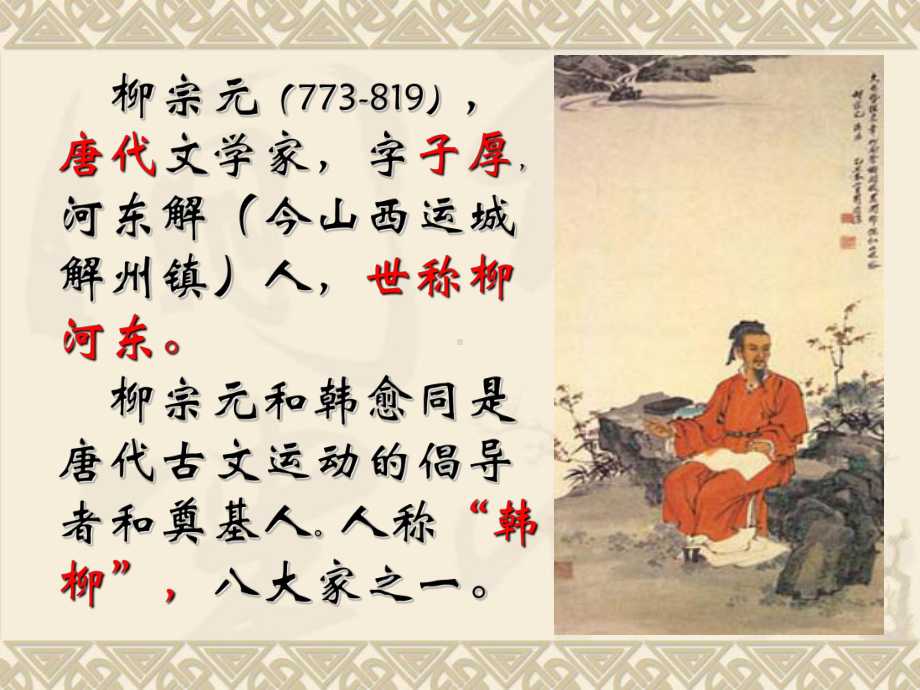 柳宗元（773-819），
唐代文学家，字子厚，
河东解（今山西运城
解州镇）人，世称柳
河东。
柳宗元和韩愈同是
唐代古文运动的倡导
者和奠基人。人称“韩
柳”，八大家之一。